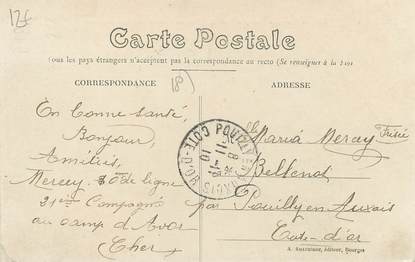 12€
Carte Postale
Tous les pays étrangers n'acceptent pas la correspondance au recto (Se renseigner à la
CORRESPONDANCE
18)
ADRESSE
En bonne santé,
Bonjour
Amitiés
Mercey. de ligne
21eme Compagnie
au camp d'Avor
Cher
POUILLY-EN-AUXOIS CÔTE-D'OR
Melle Maria Meray
Bellenot
par Pouilly en Auxois
Cote-d'or
A. Auxenfans, éditeur, Bourges